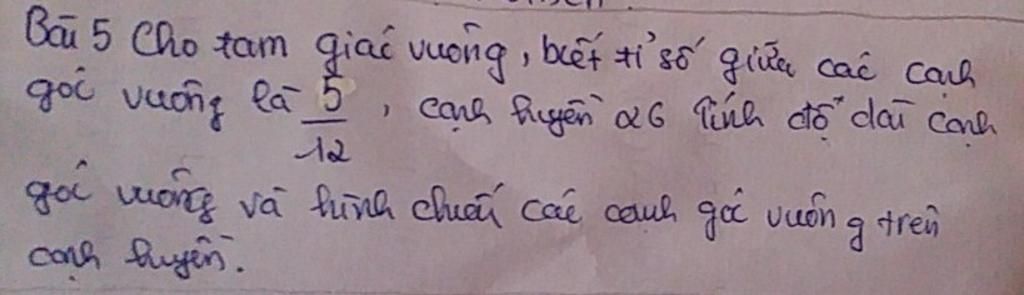 Bài 5 Cho tam giác vuông, biết tỉ số giữa các cạnh
góc vuông là 5/12, cạnh huyền 26 Tính độ dài cạnh
góc vuông và hình chiếu các cạnh góc vuông trên
cạnh huyền.